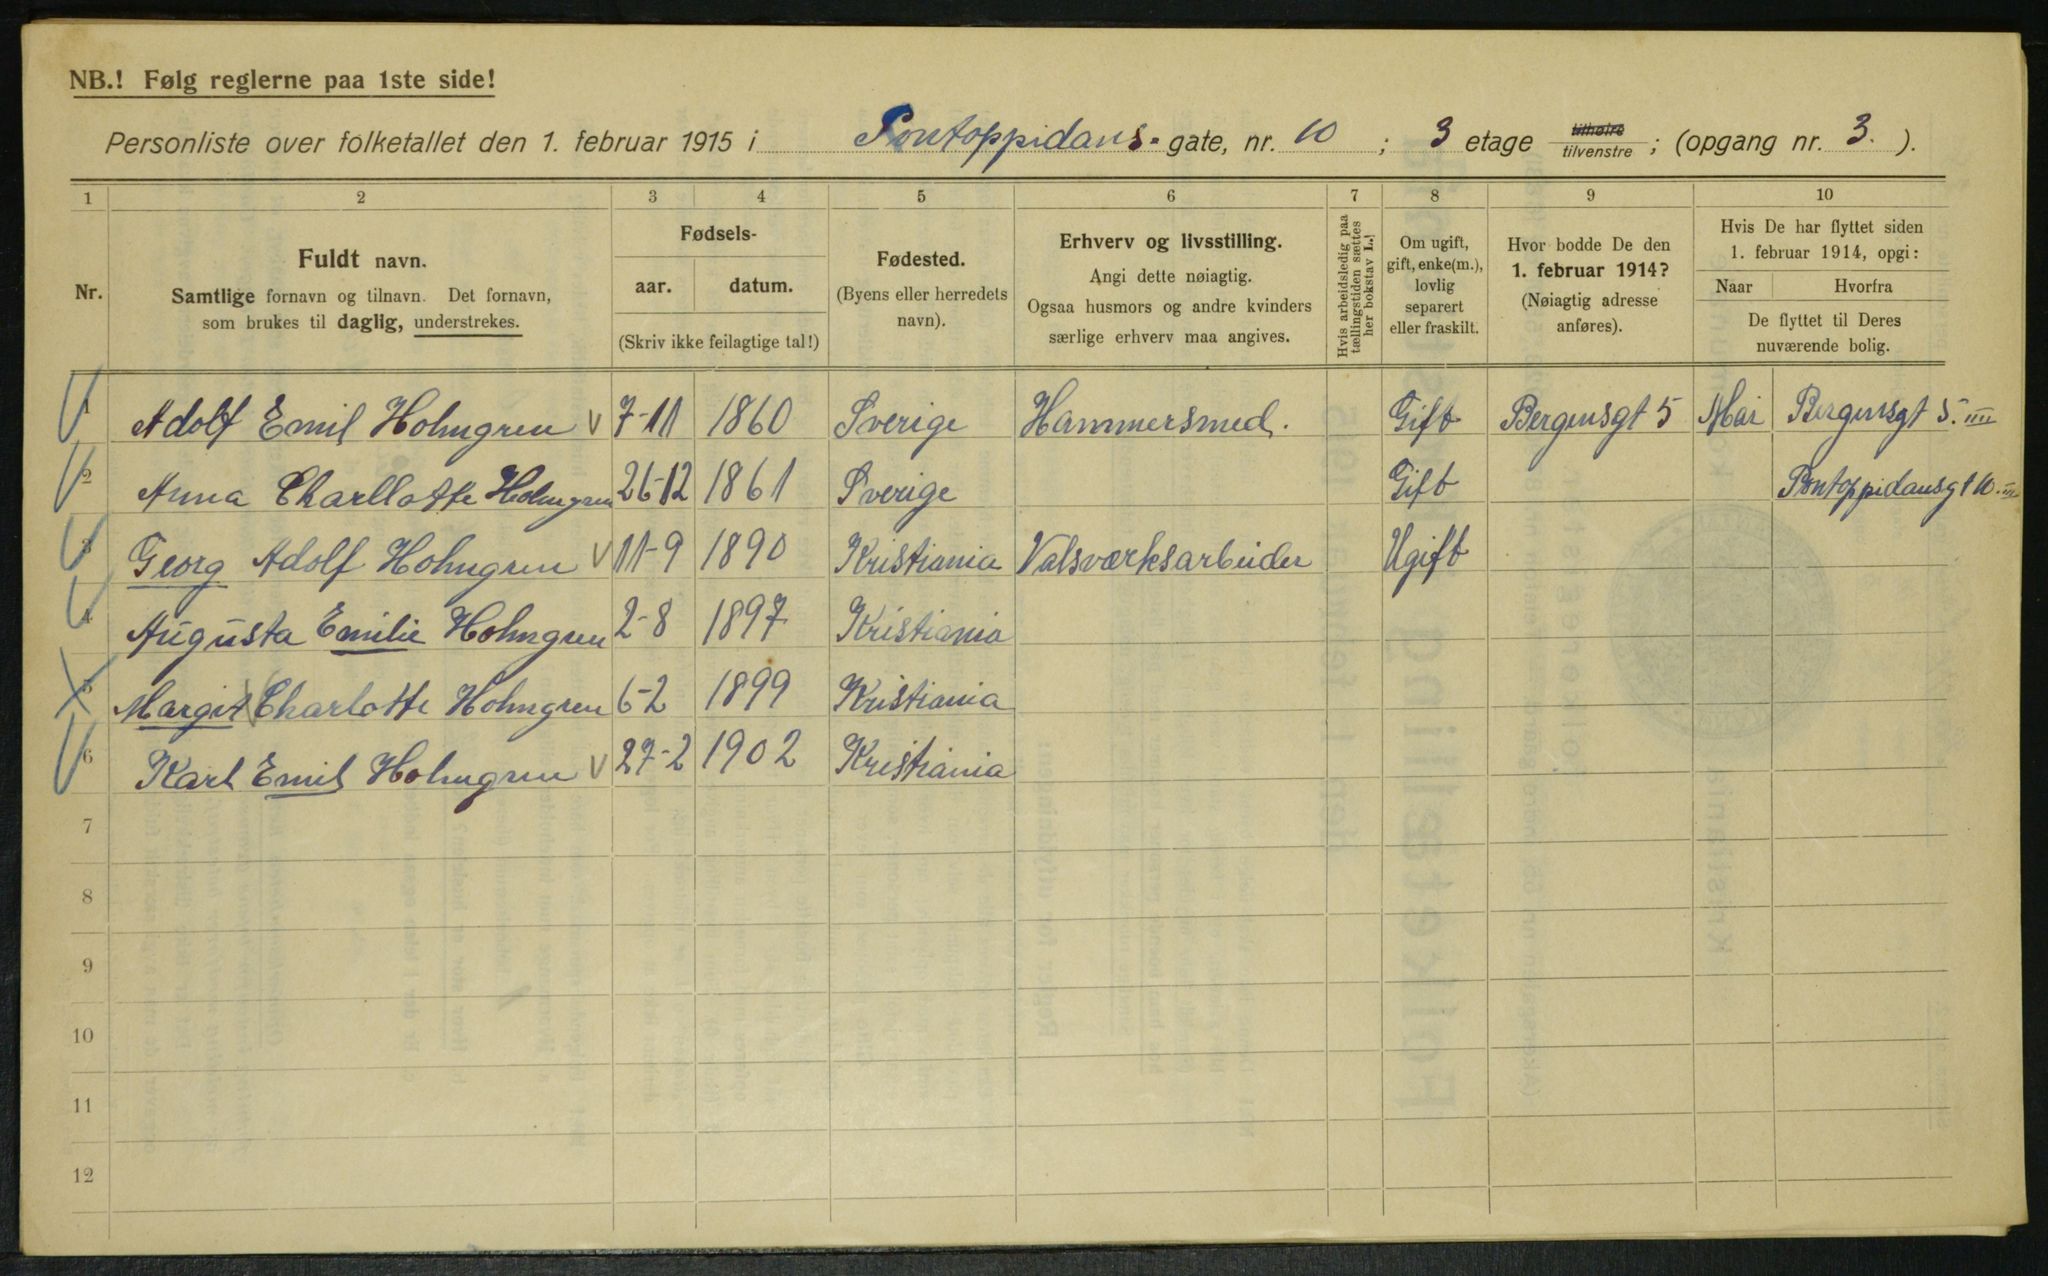 NB.! Følg reglerne paa 1ste side!
Personliste over folketallet den 1. februar 1915 i Pontoppidans-gate, nr. 10 ; 3 etage tilhøire tilvenstre ; (opgang nr. 3. ).
1 2 3 4 5 6 7 8 9 10
Nr.
Fuldt navn.
Samtlige fornavn og tilnavn. Det fornavn,
som brukes til daglig, understrekes.
Fødsels-
aar. datum.
(Skriv ikke feilagtige tal!)
Fødested.
(Byens eller herredets
navn).
Erhverv og livsstilling.
Angi dette nøiagtig.
Ogsaa husmors og andre kvinders
særlige erhverv maa angives.
Hvis arbeidsledig paa
tællingstiden sættes
her bokstav L.!
Om ugift,
gift, enke(m.),
lovlig
separert
eller fraskilt.
Hvor bodde De den
1. februar 1914?
(Nøiagtig adresse
anføres).
Hvis De har flyttet siden
1. februar 1914, opgi:
Naar Hvorfra
De flyttet til Deres
nuværende bolig.
1 Adolf Emil Holmgren 7-11 1860 Sverige Hammersmed. Gift Bergensgt 5 Mai Bergensgt 5. III
2 Anna Charllotte Holmgren 26-12 1861 Sverige Gift Pontoppidansgt 10. III
3 Georg Adolf Holmgren 11-9 1890 Kristiania Valsværksarbeider Ugift
4 Augusta Emilie Holmgren 2-8 1897 Kristiania
5 Margit Charlotte Holmgren 6-2 1899 Kristiania
6 Karl Emil Holmgren 27-2 1902 Kristiania
7
8
9
10
11
12